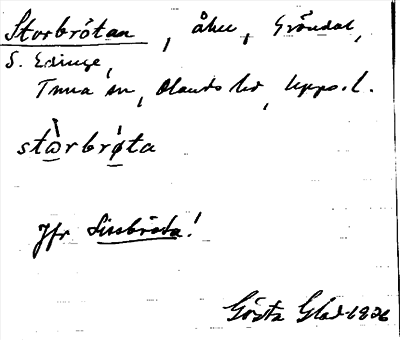 Storbrötan, åker, Gröndal,
S. Edinge,
Tuna sn, Olands hd, Upps. l.
stòrbrǿta
Jfr Lissbröta!
Gösta Glad 1926